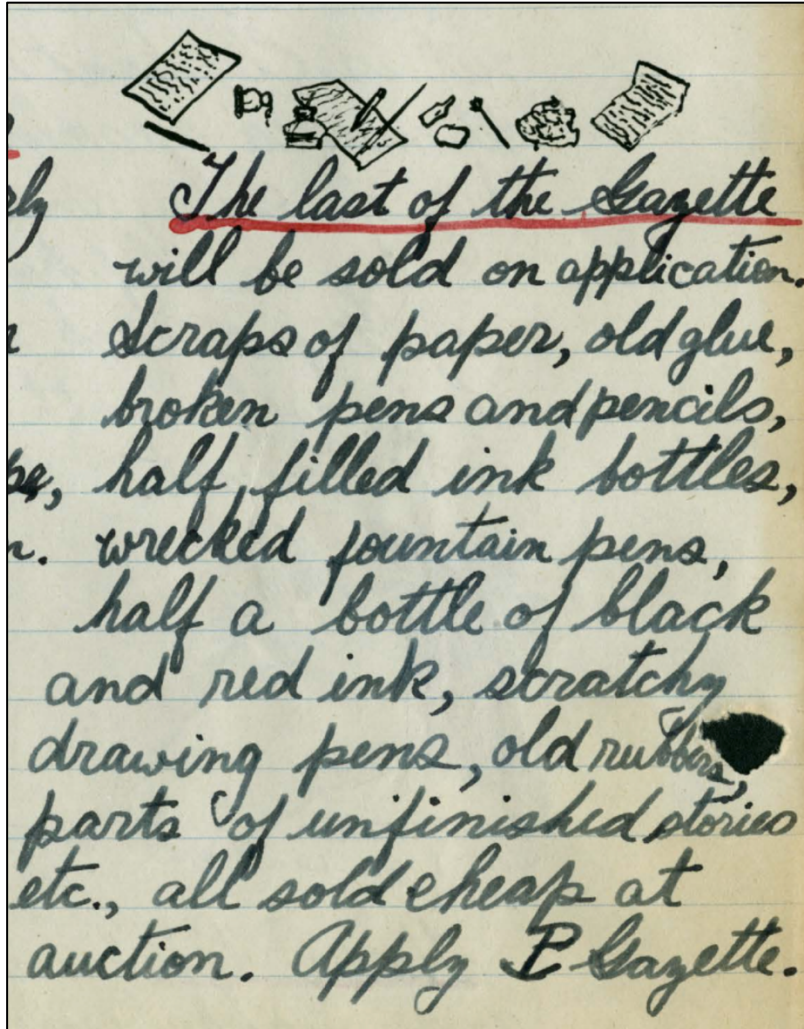 The last of the Gazette
ly will be sold on application.
Scraps of paper, old glue,
broken pens and pencils,
pe, half filled ink bottles,
n. wrecked fountain pens,
half a bottle of black
and red ink, scratchy
drawing pens, old rubbers,
parts of unfinished stories
etc., all sold cheap at
auction. Apply P Gazette.